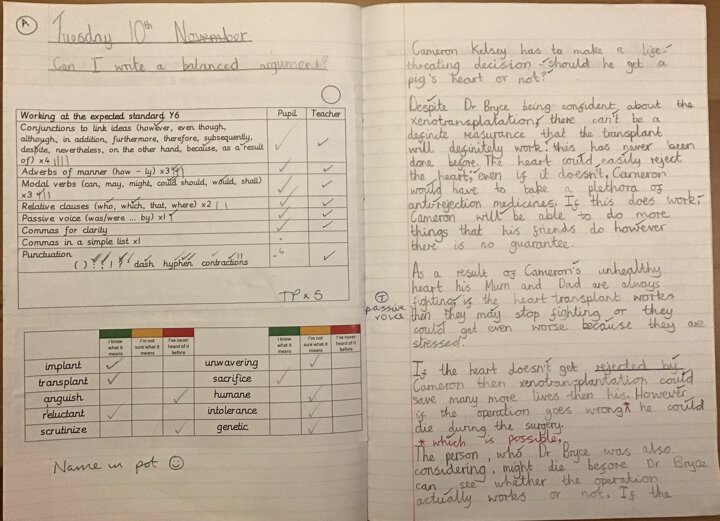 A
Tuesday 10th November
Can I write a balanced argument?
Working at the expected standard Y6 Pupil Teacher
Conjunctions to link ideas (however, even though,
although, in addition, furthermore, therefore, subsequently,
despite, nevertheless, on the other hand, because, as a result
of) x4
Adverbs of manner (how - ly) x3
Modal verbs (can, may, might, could should, would, shall)
x3
Relative clauses (who, which, that, where) x2
Passive voice (was/were ... by) x1
Commas for clarity
Commas in a simple list x1
Punctuation
( ) ! ? dash hyphen contractions
TP x 5
I know what it means
I'm not sure what it means
I've never heard of it before
I know what it means
I'm not sure what it means
I've never heard of it before
implant unwavering
transplant sacrifice
anguish humane
reluctant intolerance
scrutinize genetic
Name in pot
Cameron Kelsey has to make a life-
threating decision - should he get a
pig's heart or not?
Despite Dr Bryce being confident about the
xenotransplatation, there can't be a
definite reasurance that the transplant
will definitely work: this has never been
done before. The heart could easily reject
the heart, even if it doesn't, Cameron
would have to take a plethora of
anti-rejection medicines. If this does work,
Cameron will be able to do more
things that his friends do however
there is no guarantee.
As a result of Cameron's unhealthy
heart his Mum and Dad are always
fighting, if the heart-transplant works
then they may stop fighting or they
could get even worse because they are
stressed.
T passive voice
If the heart doesn't get rejected by
Cameron then xenotransplantation could
save many more lives then his. However
if the operation goes wrong* he could
die during the surgery.
* which is possible,
The person, who Dr Bryce was also
considering, might die before Dr Bryce
can see whether the operation
actually works or not. If the